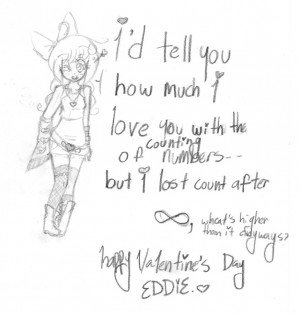 i'd tell you
how much i
love you with the
counting
of numbers--
but i lost count after
∞, what's higher
than it anyways?
happy Valentine's Day
EDDIE. ♡